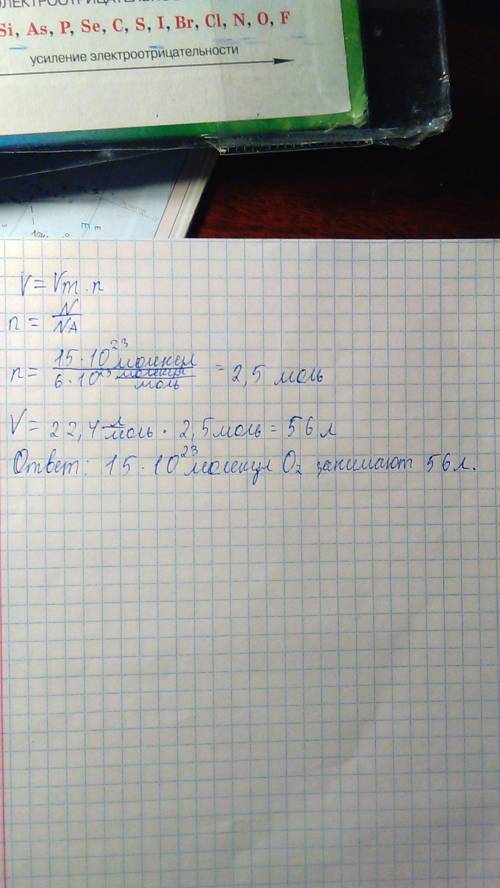 ЛЕКТРООТРИЦАТЕЛЬНО
Si, As, P, Se, C, S, I, Br, Cl, N, O, F
усиление электроотрицательности
V = Vm · n
n = N/NA
n = 15 · 10²³ молекул / 6 · 10²³ молекул/моль = 2,5 моль
V = 22,4 л/моль · 2,5 моль = 56 л
Ответ: 15 · 10²³ молекул O₂ занимают 56 л.